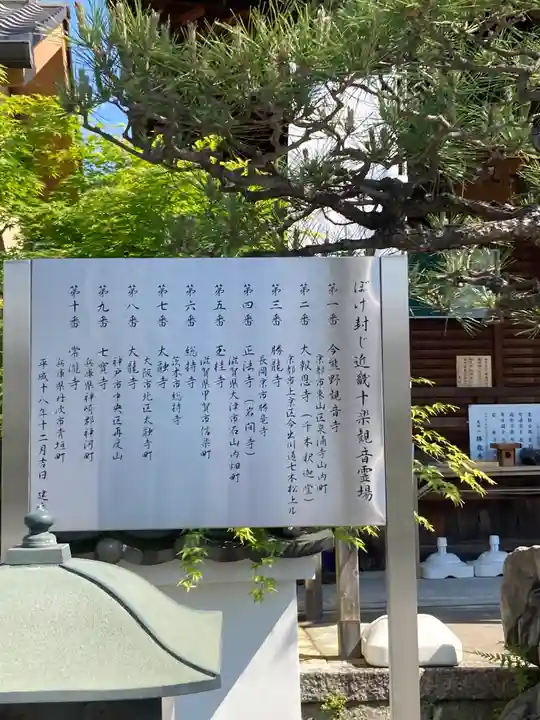 ぼけ封じ近畿十楽観音霊場
第一番 今熊野観音寺
京都市東山区泉涌寺山内町
第二番 大報恩寺（千本釈迦堂）
京都市上京区今出川通七本松上ル
第三番 勝龍寺
長岡京市勝竜寺
第四番 正法寺（岩間寺）
滋賀県大津市石山内畑町
第五番 玉桂寺
滋賀県甲賀市信楽町
第六番 総持寺
茨木市総持寺
第七番 太融寺
大阪市北区太融寺町
第八番 大龍寺
神戸市中央区再度山
第九番 七宝寺
兵庫県神崎郡神河町
第十番 常瀧寺
兵庫県丹波市青垣町
平成十八年十二月吉日 建